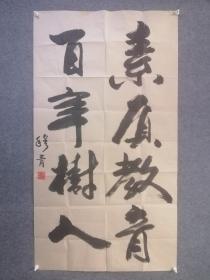 素质教育
百年树人
穆青